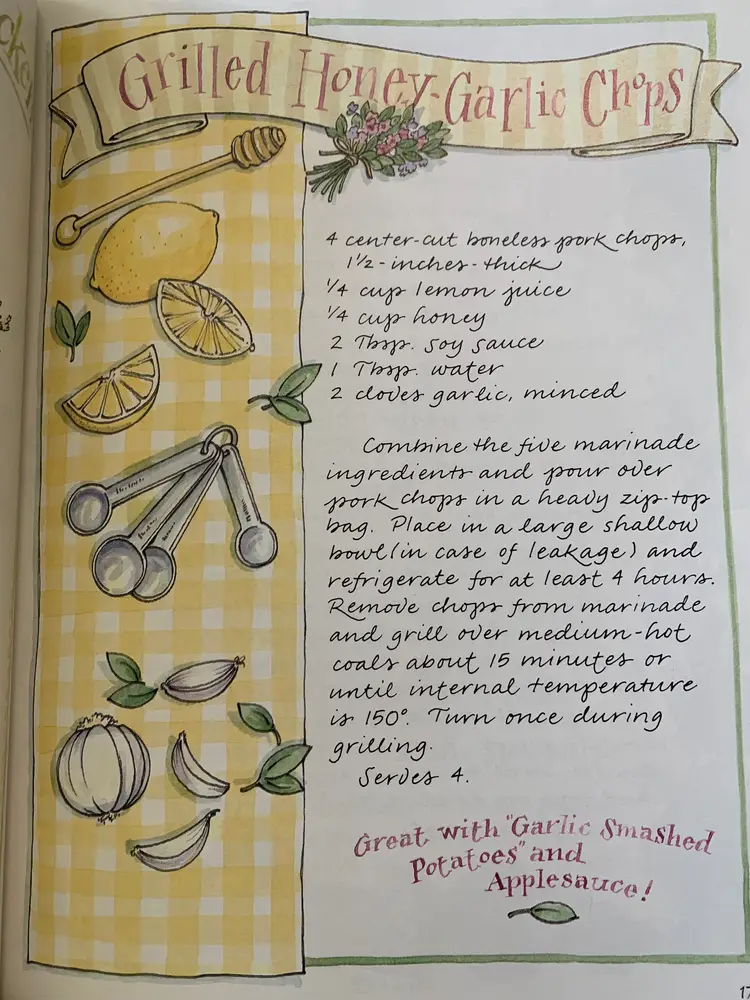 Grilled Honey-Garlic Chops
4 center-cut boneless pork chops,
1½-inches-thick
¼ cup lemon juice
¼ cup honey
2 Tbsp. soy sauce
1 Tbsp. water
2 cloves garlic, minced
Combine the five marinade
ingredients and pour over
pork chops in a heavy zip-top
bag. Place in a large shallow
bowl (in case of leakage) and
refrigerate for at least 4 hours.
Remove chops from marinade
and grill over medium-hot
coals about 15 minutes or
until internal temperature
is 150°. Turn once during
grilling.
Serves 4.
Great with "Garlic Smashed
Potatoes" and
Applesauce!